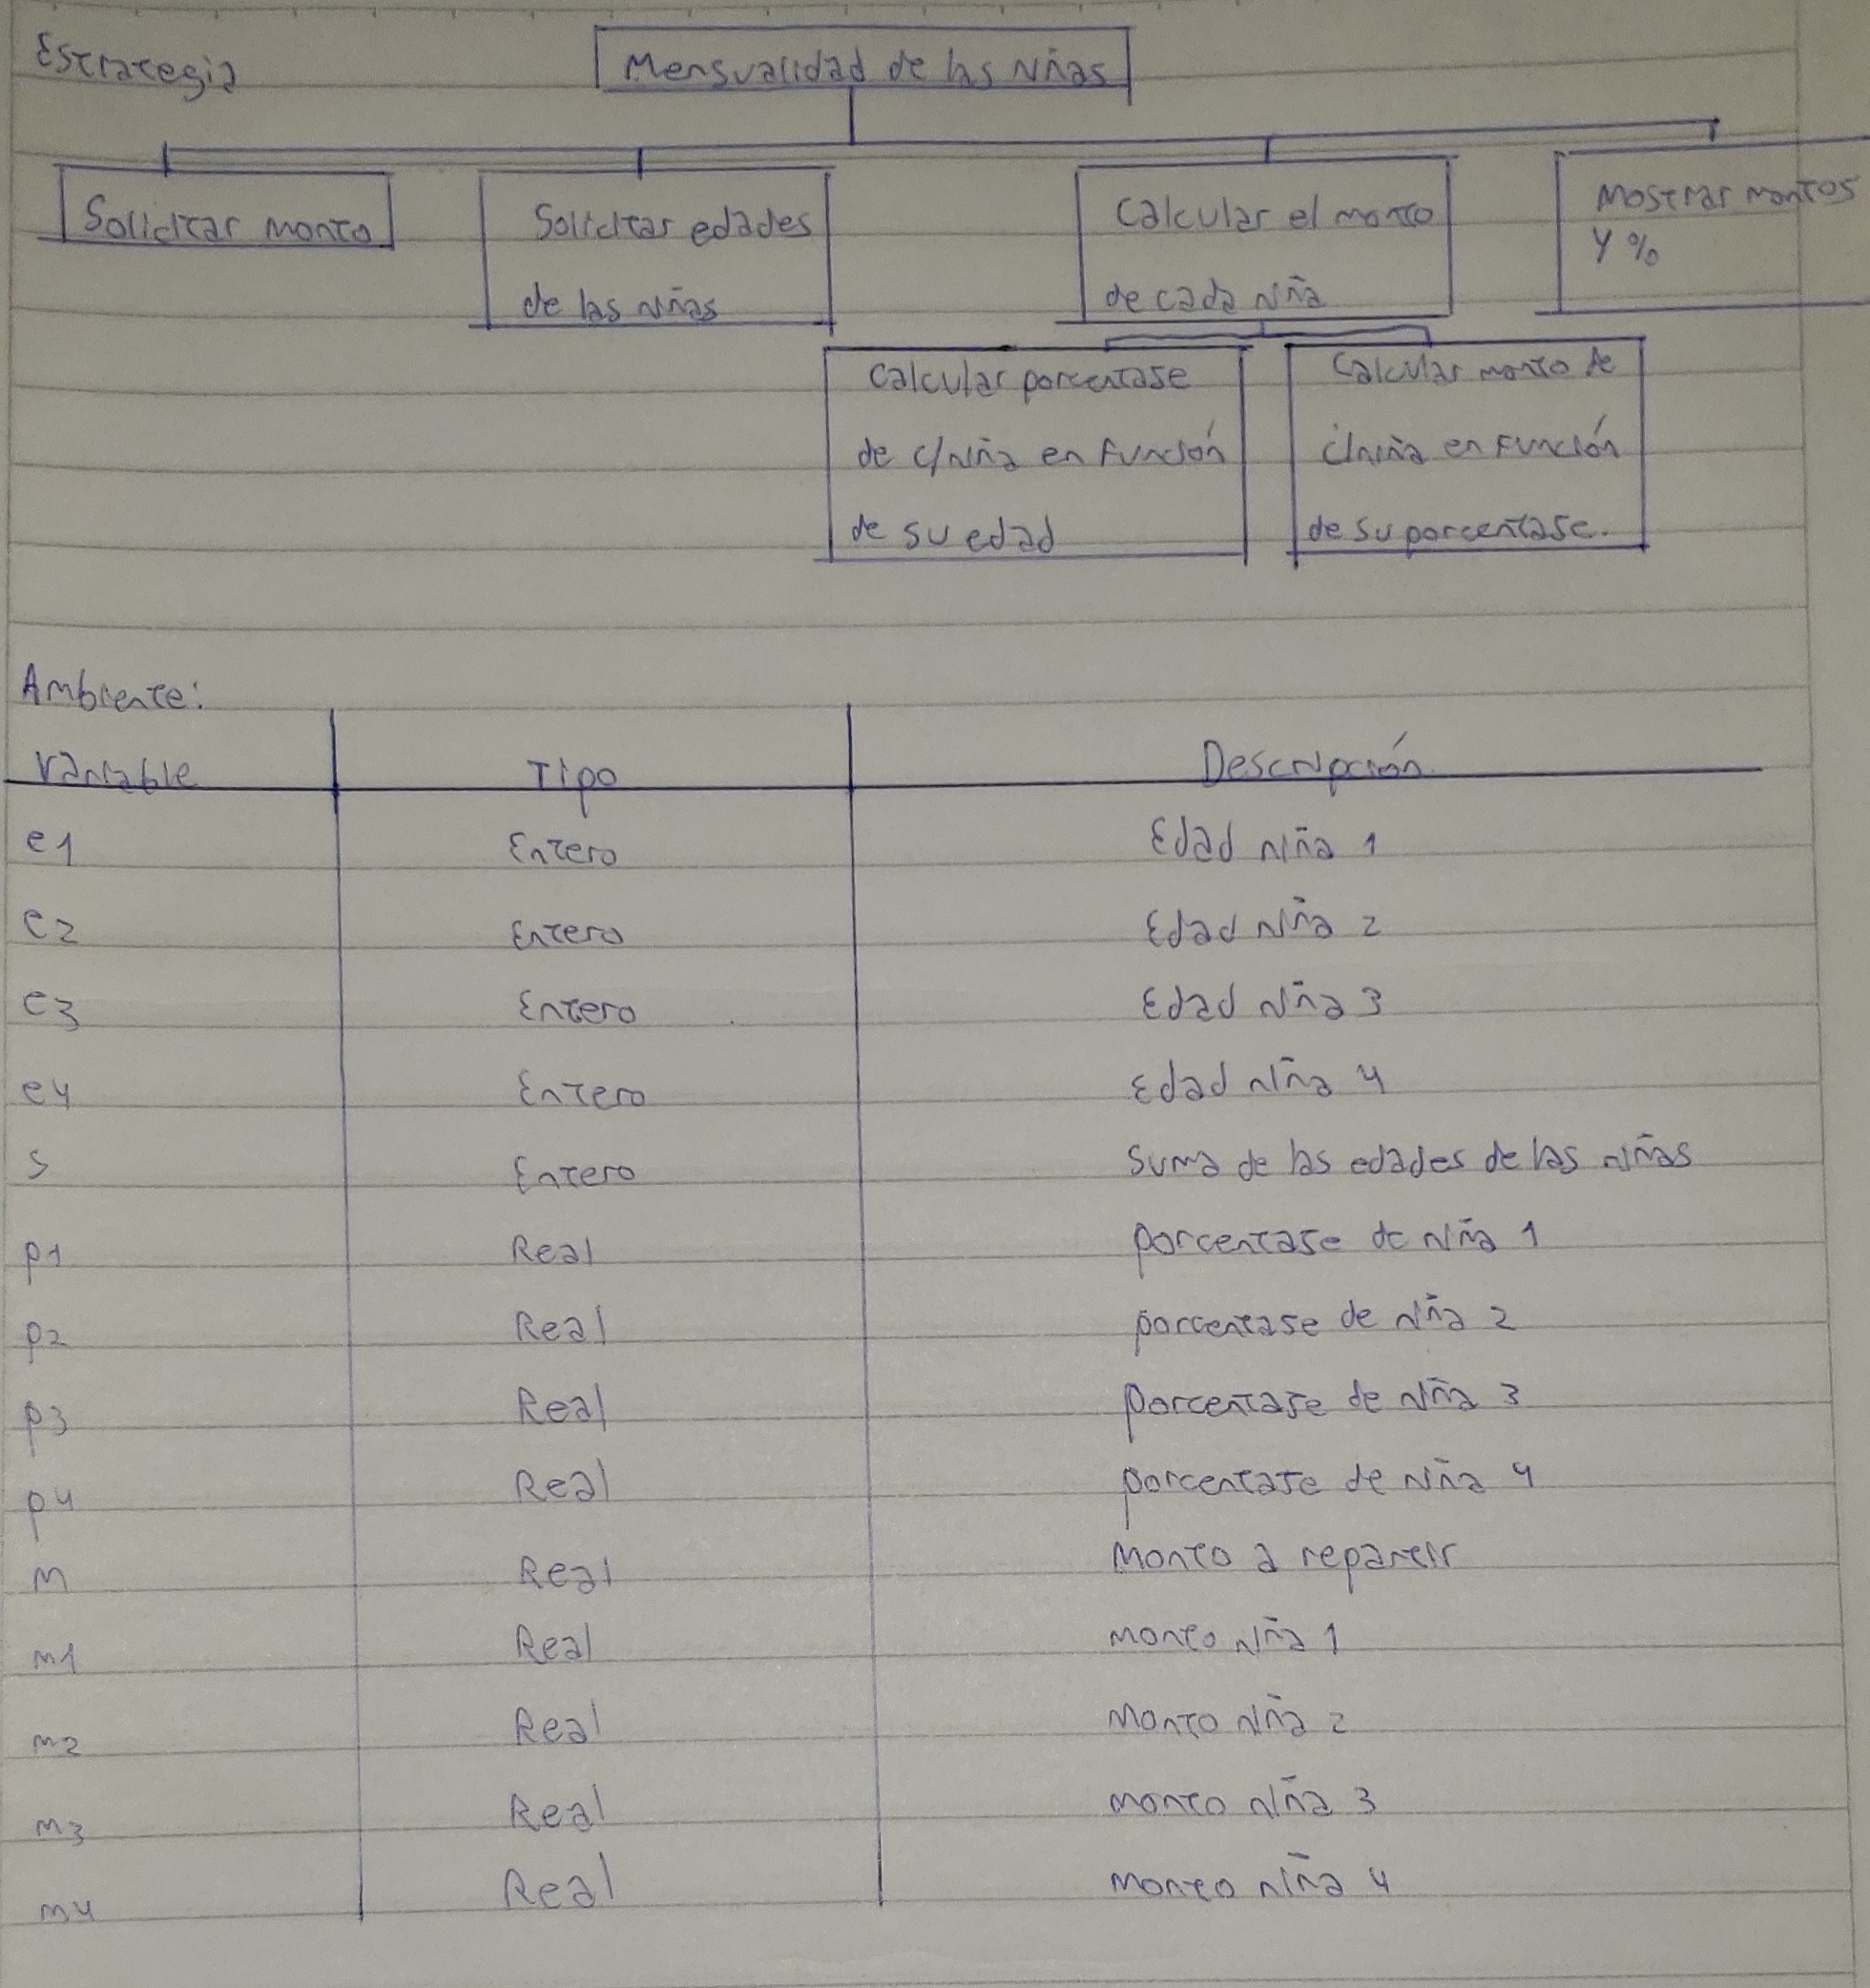 Estrategia
Mensualidad de las niñas
Solicitar monto
Solicitar edades
de las niñas
Calcular el monto
de cada niña
Mostrar montos
y %
Calcular porcentaje
de c/niña en función
de su edad
Calcular monto de
c/niña en función
de su porcentaje.
Ambiente:
Variable Tipo Descripción
e1 Entero Edad niña 1
e2 Entero Edad niña 2
e3 Entero Edad niña 3
e4 Entero Edad niña 4
s Entero Suma de las edades de las niñas
p1 Real porcentaje de niña 1
p2 Real porcentaje de niña 2
p3 Real porcentaje de niña 3
p4 Real porcentaje de niña 4
M Real Monto a repartir
m1 Real monto niña 1
m2 Real monto niña 2
m3 Real monto niña 3
m4 Real monto niña 4